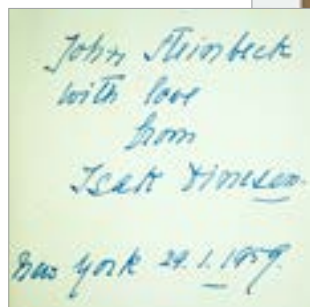 John Steinbeck
with love
from
Isak Dinesen.
New York 29.1.1959.